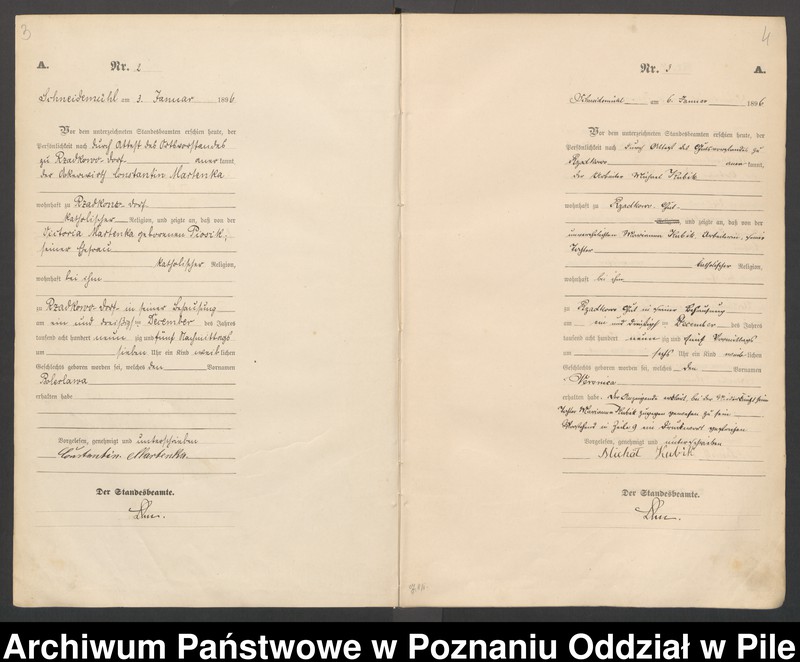 3
A. Nr. 2
Schneidemühl am 3. Januar 1896.
Vor dem unterzeichneten Standesbeamten erschien heute, der
Persönlichkeit nach durch Attest des Ortsvorstandes
zu Rzadkowo Dorf anerkannt,
der Ackerwirth Constantin Martenka
wohnhaft zu Rzadkowo Dorf
katholischer Religion, und zeigte an, daß von der
Victoria Martenka geborenen
seiner Ehefrau
katholischer Religion,
wohnhaft bei ihm
zu Rzadkowo Dorf in seiner Behausung
am ein und dreißigsten December des Jahres
tausend acht hundert neunzig und fünf Nachmittags
um sieben Uhr ein Kind weiblichen
Geschlechts geboren worden sei, welches den Vornamen
Boleslawa
erhalten habe
Vorgelesen, genehmigt und unterschrieben
Constantin Martenka.
Der Standesbeamte.
4
Nr. 3 A.
Schneidemühl am 6. Januar 1896
Vor dem unterzeichneten Standesbeamten erschien heute, der
Persönlichkeit nach durch Attest des Gutsvorstandes zu
Rzadkowo anerkannt,
der Arbeiter Michael Kubik
wohnhaft zu Rzadkowo Gut
Religion, und zeigte an, daß von der
unverehelichten Marianna Kubik, Arbeiterin, seine
Tochter
katholischer Religion,
wohnhaft bei ihm
zu Rzadkowo Gut in seiner Behausung
am ein und dreißigsten December des Jahres
tausend acht hundert neunzig und fünf Vormittags
um sechs Uhr ein Kind weiblichen
Geschlechts geboren worden sei, welches den Vornamen
Veronica
erhalten habe. Der Anzeigende erklärt, bei der Niederkunft seiner
Tochter Marianna Kubik zugegen gewesen zu sein
Vorstehend in Zeile 9 ein Druckwort gestrichen
Vorgelesen, genehmigt und unterschrieben
Michał Kubik
Der Standesbeamte.
Archiwum Państwowe w Poznaniu Oddział w Pile